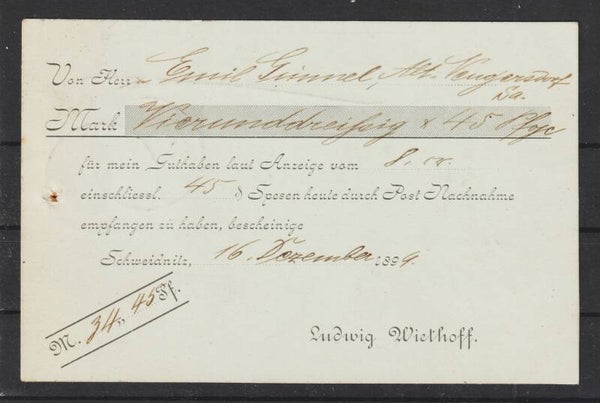 Von Herrn Emil Gimmel, Alt-Neugersdorf
Sa.
Mark Vierunddreißig & 45 Pfge
für mein Guthaben laut Anzeige vom 8. cr.
einschliessl. 45 ₰ Spesen heute durch Post Nachnahme
empfangen zu haben, bescheinige
Schweidnitz, 16. Dezember 1899.
M. 34,, 45 Pf.
Ludwig Wiethoff.